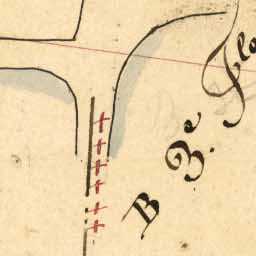 B 3.e Flo